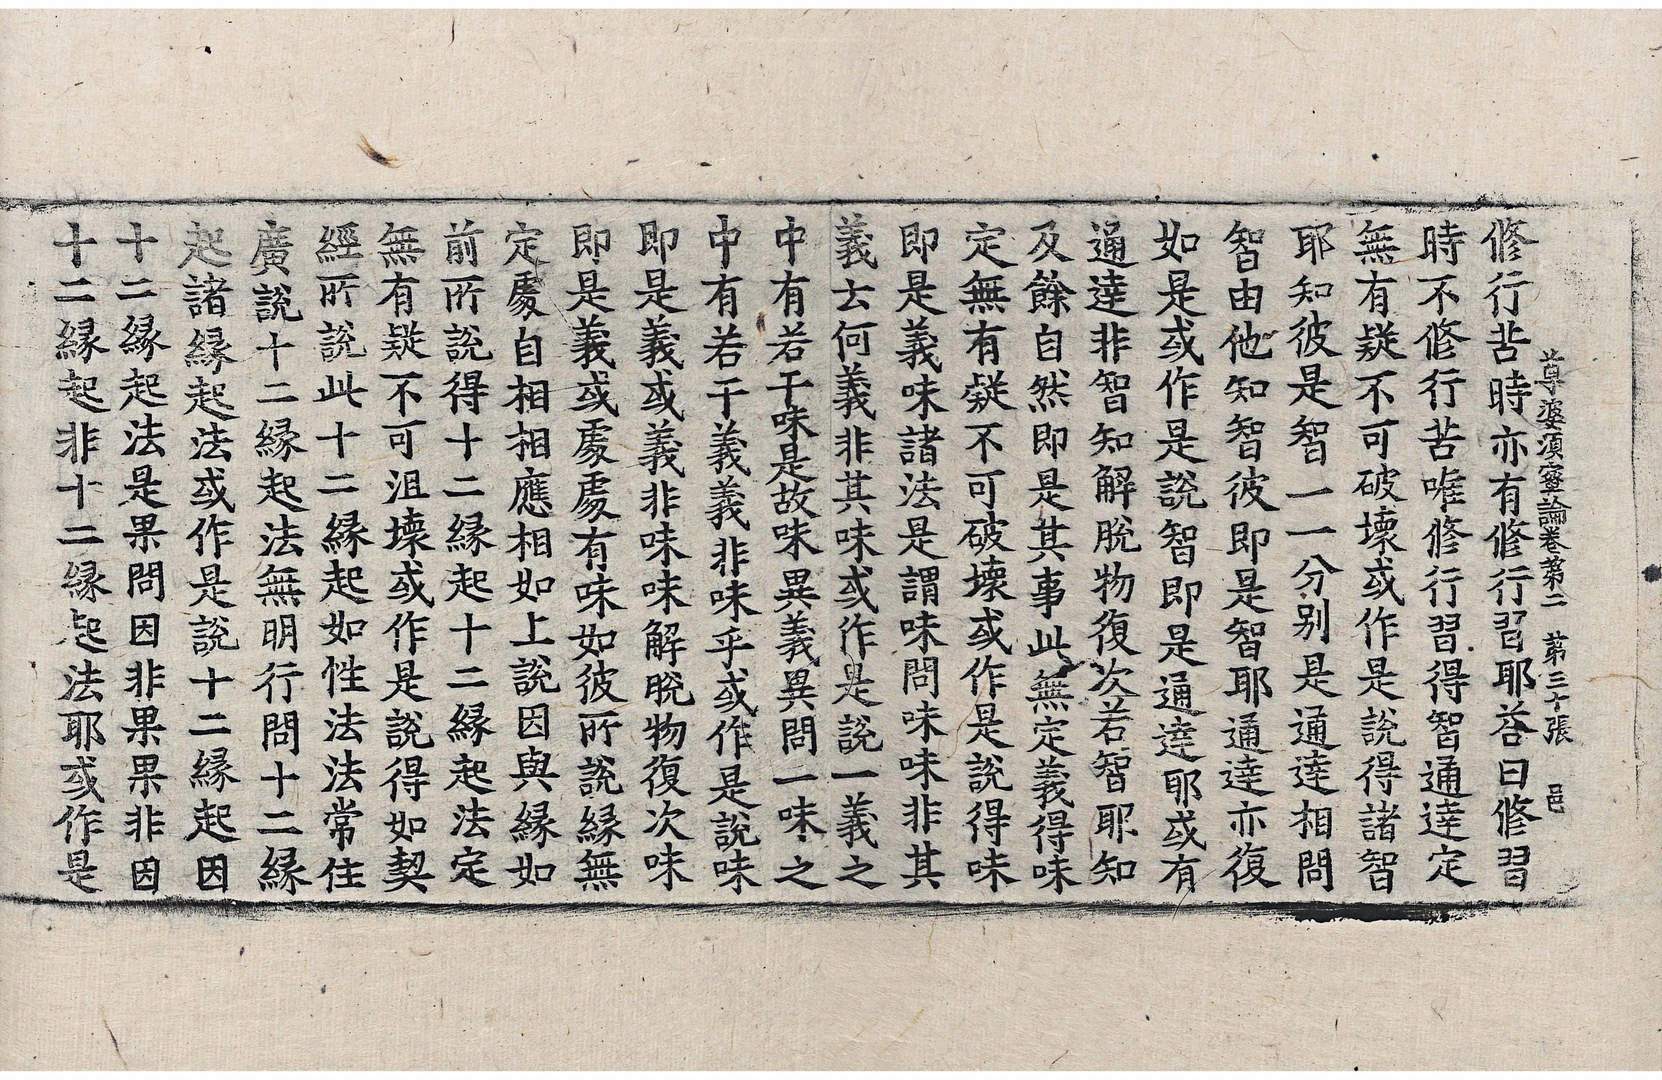 尊婆須蜜論卷第二　第三十張　邑
修行苦時亦有修行習耶荅曰修習
時不修行苦唯修行習得智通達定
無有疑不可破壞或作是說得諸智
耶知彼是智一一分别是通達相問
智由他知智彼即是智耶通達亦復
如是或作是說智即是通達耶或有
通達非智知解脫物復次若智耶知
及餘自然即是其事此無定義得味
定無有疑不可破壞或作是說得味
即是義味諸法是謂味問味味非其
義云何義非其味或作是說一義之
中有若干味是故味異義異問一味之
中有若干義義非味乎或作是說味
即是義或義非味味解脫物復次味
即是義或處處有味如彼所說緣無
定處自相相應相如上說因與緣如
前所說得十二緣起十二緣起法定
無有疑不可沮壞或作是說得如契
經所說此十二緣起如性法法常住
廣說十二緣起法無明行問十二緣
起諸緣起法或作是說十二緣起因
十二緣起法是果問因非果果非因
十二緣起非十二緣起法耶或作是